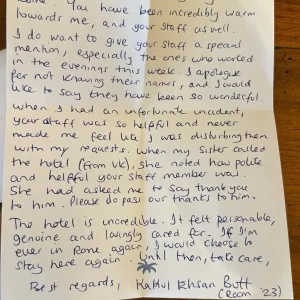 You have been incredibly warm
towards me, and your staff as well.
I do want to give your staff a special
mention, especially the ones who worked
in the evenings this week. I apologise
for not knowing their names, and I would
like to say they have been so wonderful.
When I had an unfortunate incident,
your staff was so helpful and never
made me feel like I was disturbing them
with my requests. When my sister called
the hotel (from UK), she noted how polite
and helpful your staff member was.
She had asked me to say thank you
to him. Please do pass our thanks to him.
The hotel is incredible. It felt personable,
genuine and lovingly cared for. If I'm
ever in Rome again, I would choose to
stay here again. Until then, take care,
Best regards, Ihsan Butt
(Room '23)